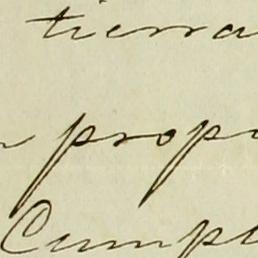 tierra
prop
Cump